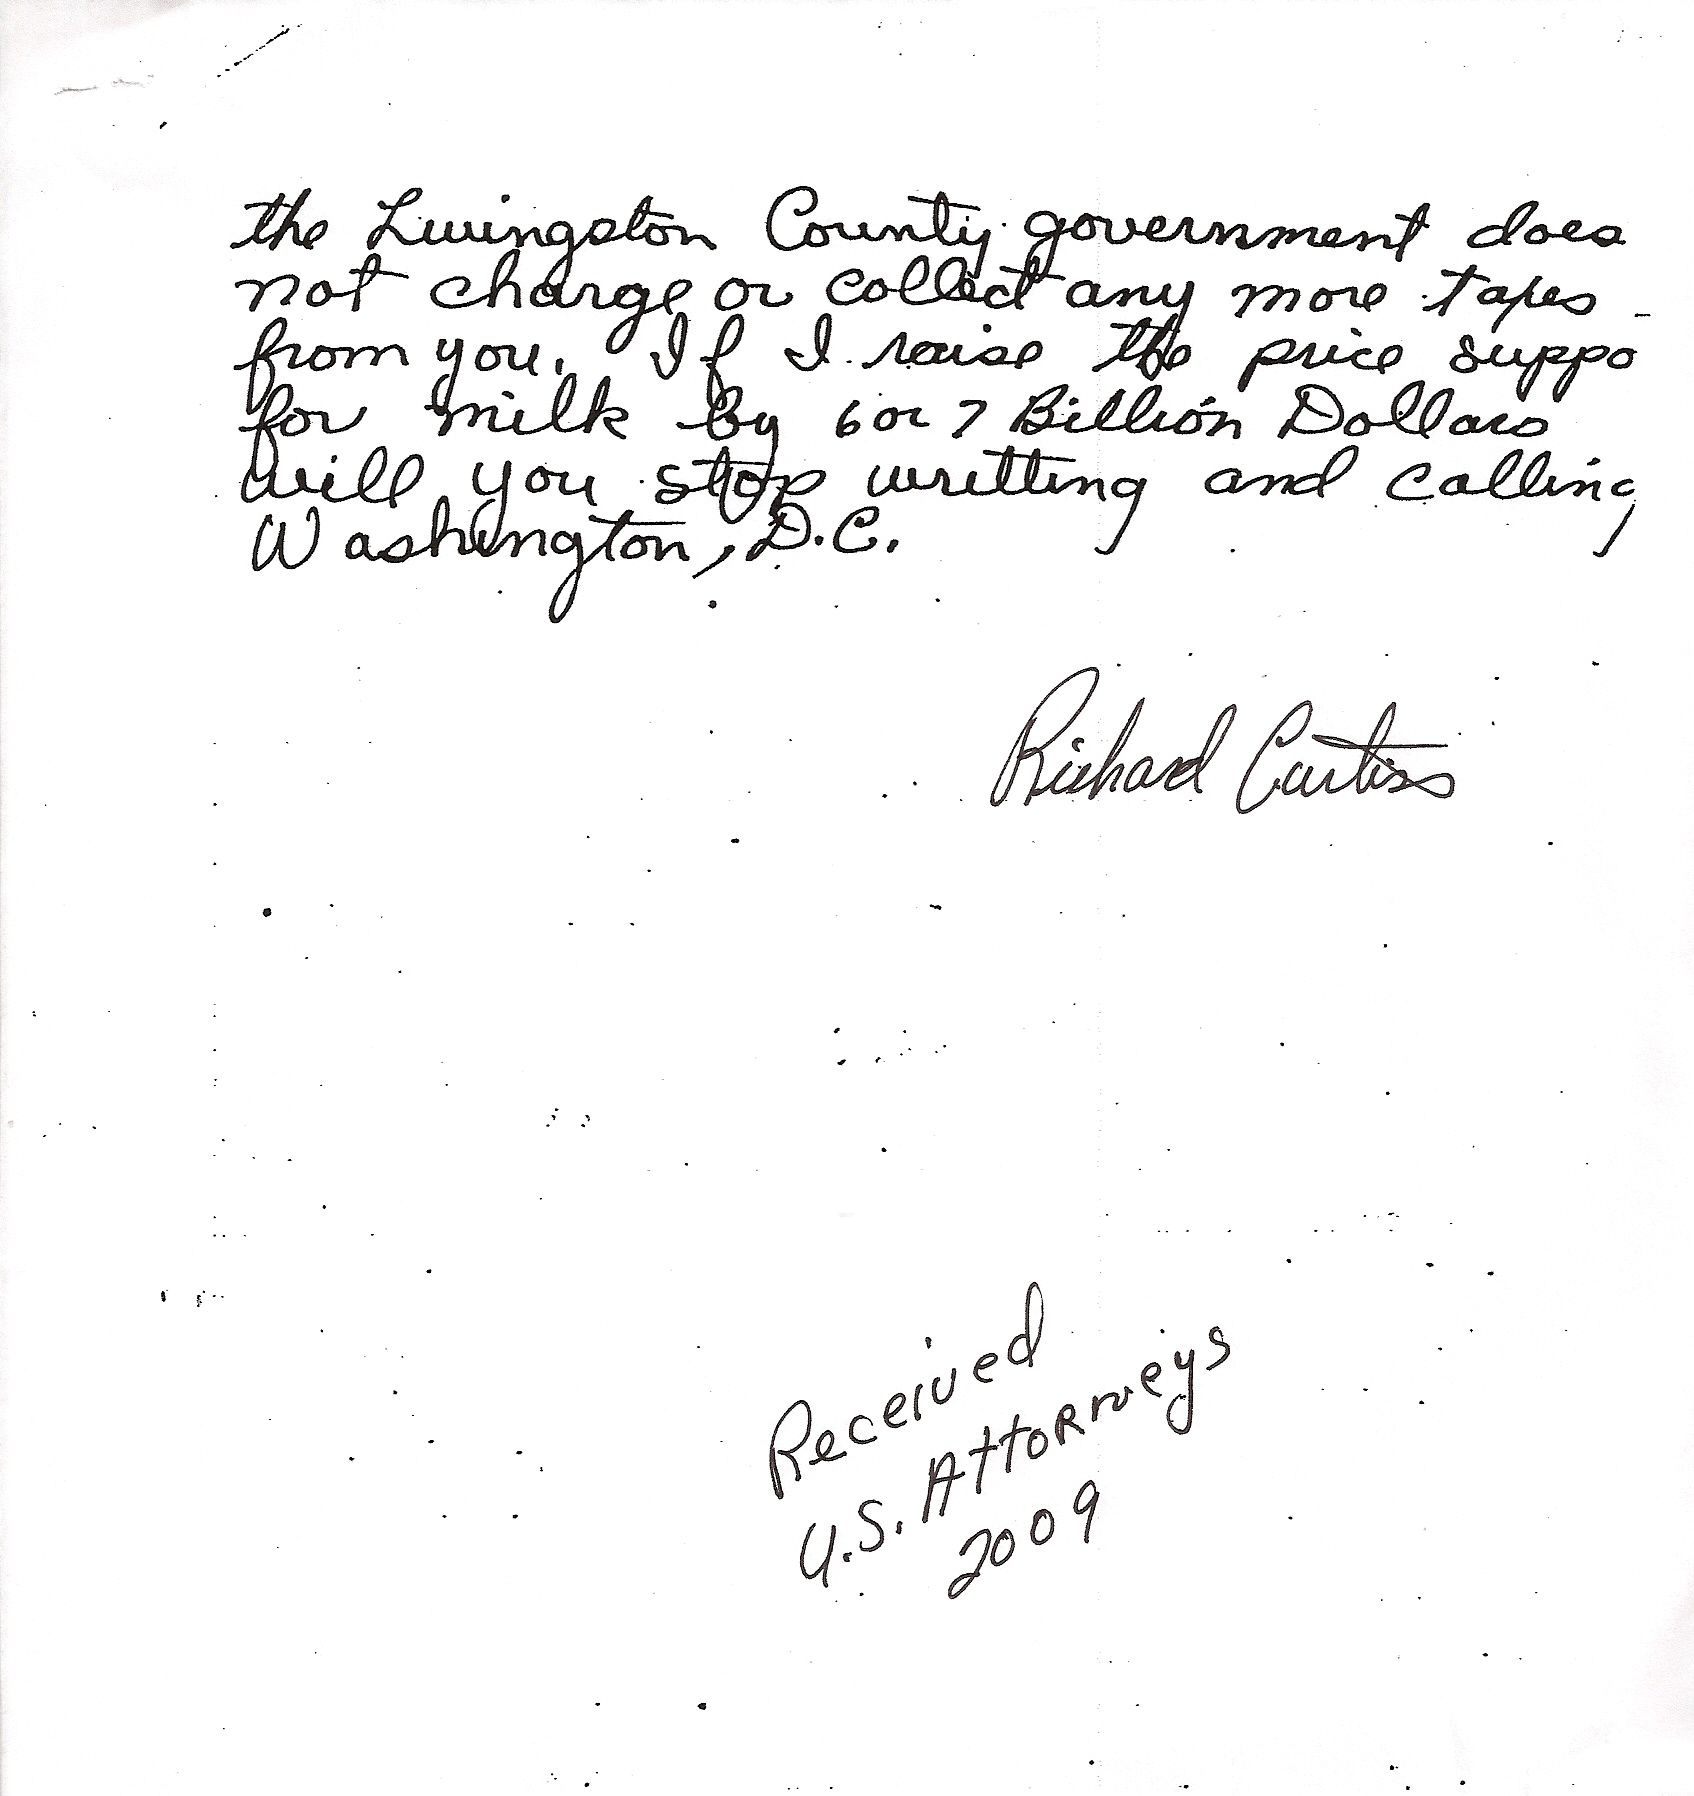 the Livingston County government does
not charge or collect any more taxes
from you. If I raise the price suppo
for milk by 6 or 7 Billion Dollars
will you stop writting and calling
Washington, D.C.
Richard Curtiss
Received
U.S. Attorneys
2009